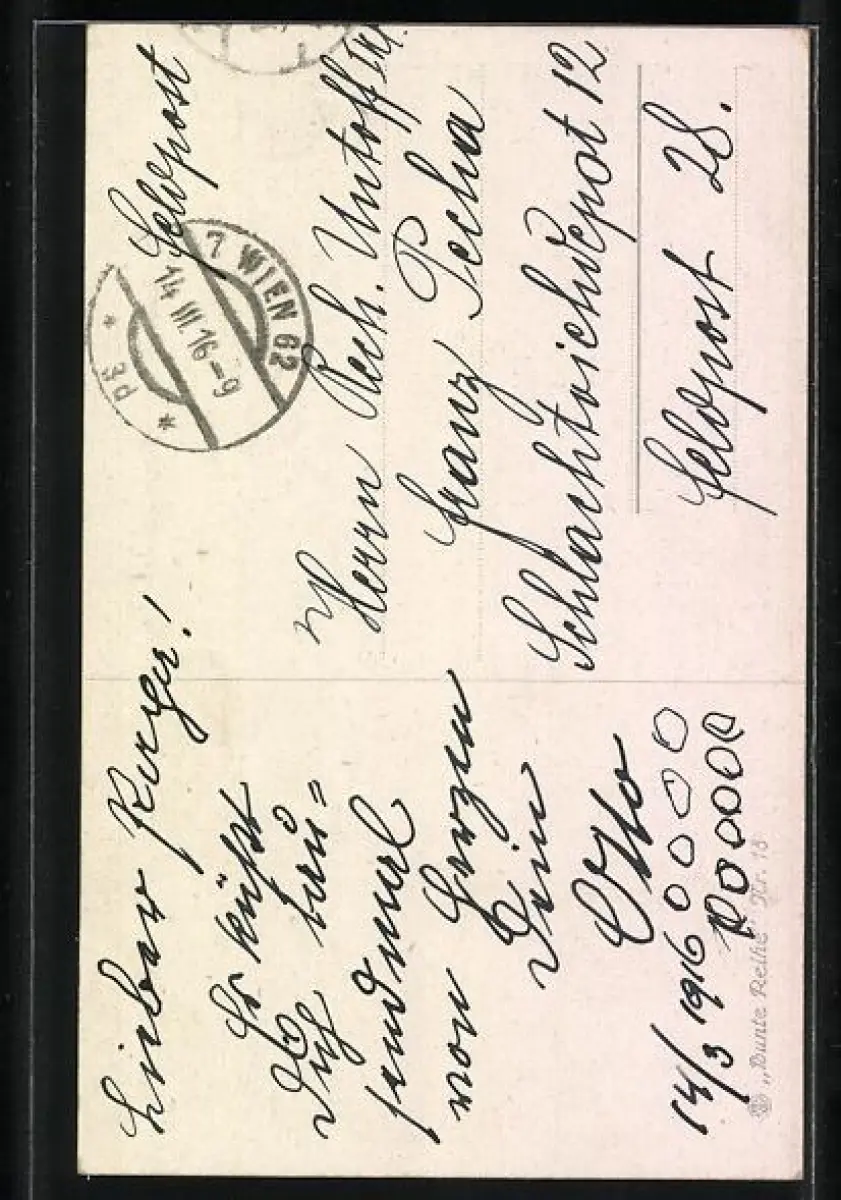 Lieber
Es küßt
Dich tau=
sendmal
von Herzen
Dein
Otto
14/3 1916
"Bunte Reihe" Nr. 18
Feldpost
7 WIEN 62
14 III. 16-9
Herrn Rech. Untoff
Franz Pecha
Schlachtviehdepot 12
Feldpost 28.